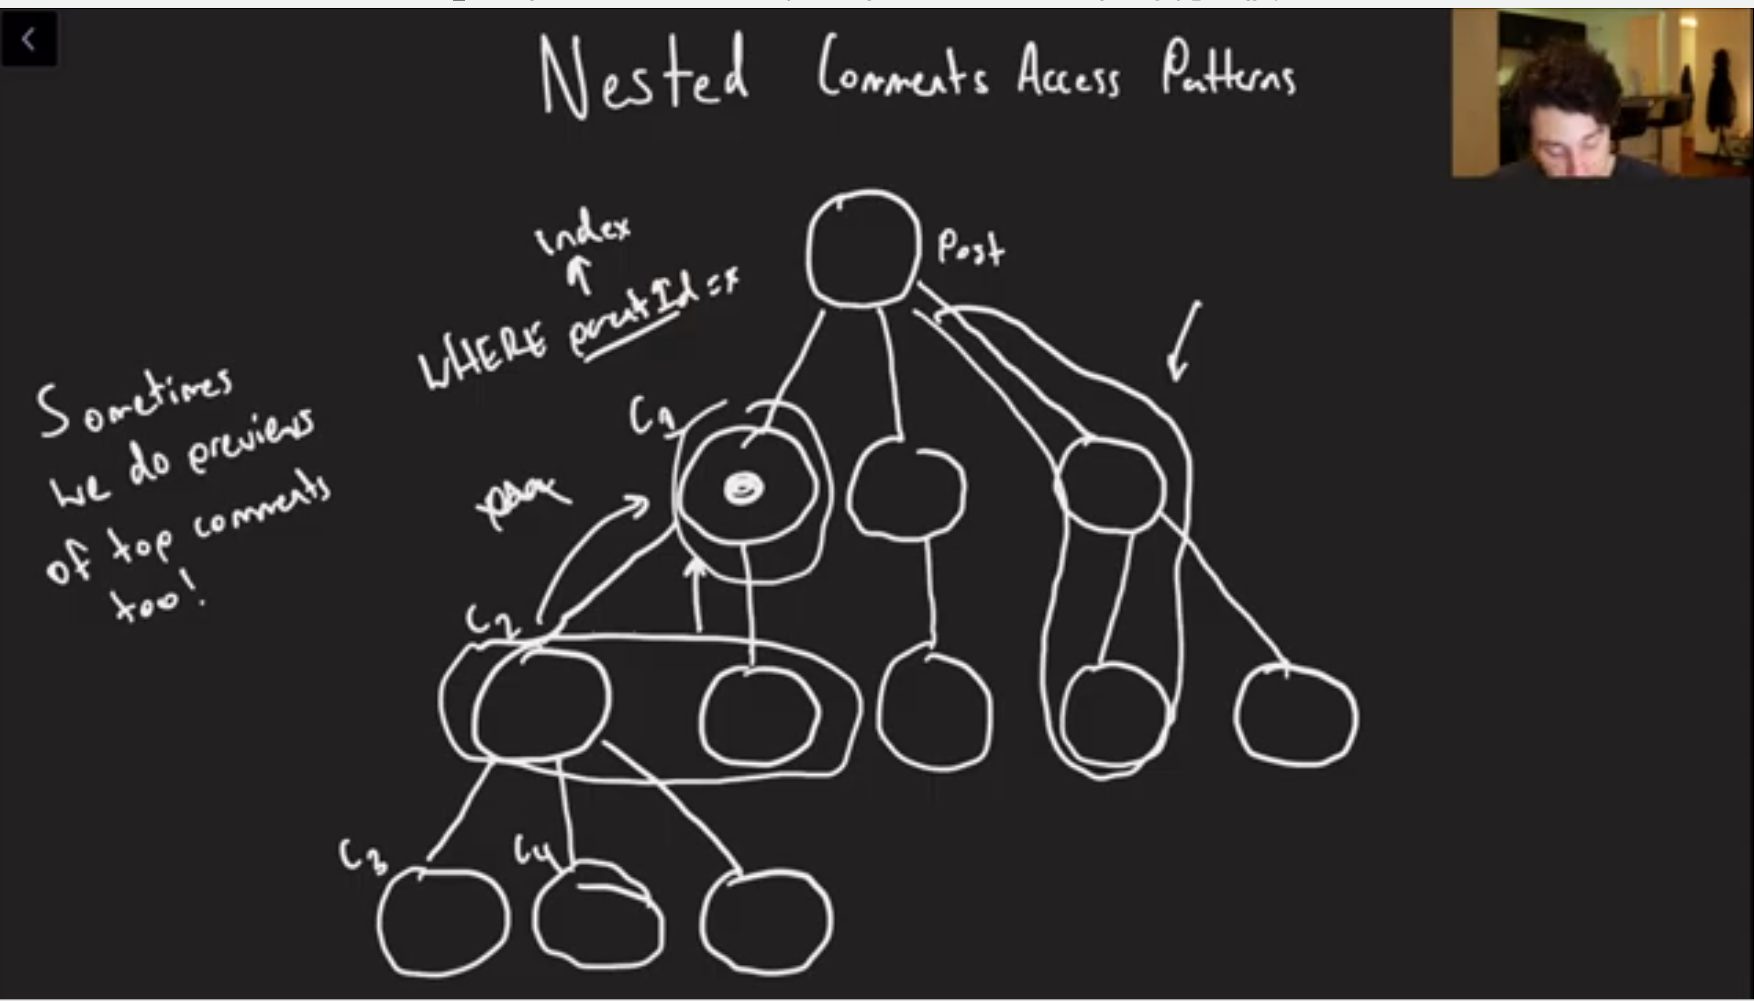 Nested Comments Access Patterns
Index
Post
WHERE parentId = x
Sometimes
we do previews
of top comments
too!
C1
C2
C3
C4